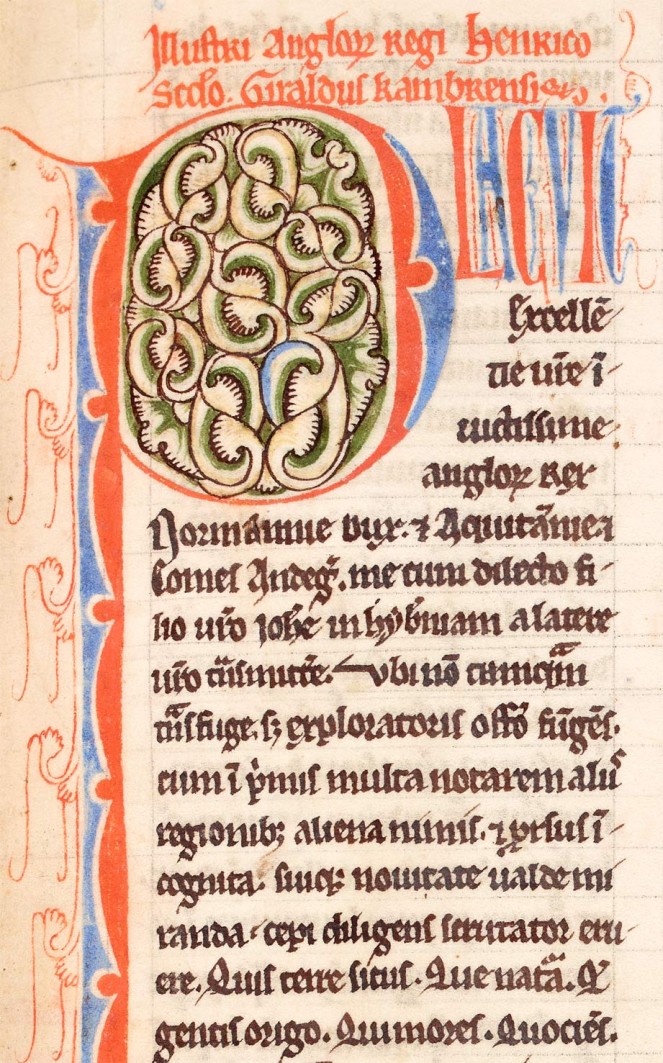 Illustri Angloꝝ regi Henrico
Scd̄o. Giraldus kambrensis.
PLACVIT
Excellē
tie ur̄e ī
uictissime
angloꝝ rex
Normannie dux. ⁊ Aquitānie ⁊
Comes Andeg̃. me cum dilecto fi
lio ur̄o ioh̄e in hyb̄niam a latere
ur̄o t̃nsmitt̃e. vbi nō tamq̃m
t̃nsfuga. sꝫ exploratoris offō fũgēs.
cum ī p̃mis multa notarem aliis
regionibꝫ aliena nimis. ⁊ ꝓrsus ī
cognita. suiqꝫ nouitate ualde mi
randa. cepi diligens scrutator eru
ere. Quis terre situs. Que natã. Q̃
gentis origo. Qui mores. Quociēs.